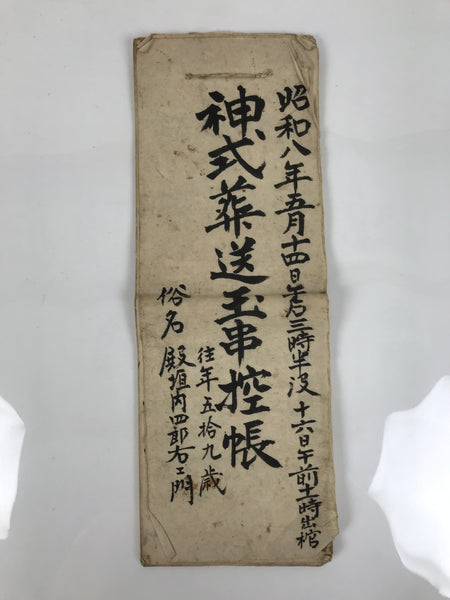 昭和八年五月十四日午后三時半没 十六日午前十一時出棺
神式葬送玉串控帳
往年五拾九歳
俗名 殿垣内四郎右エ門